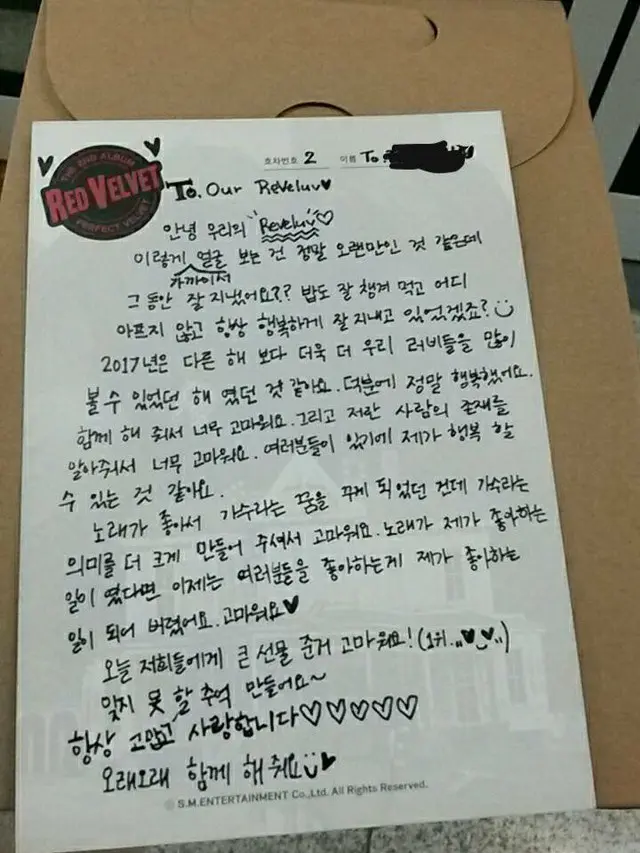 THE 2ND ALBUM
RED VELVET
PERFECT VELVET
호차번호 2 이름 To.
To. Our ReVeluv♥
안녕 우리의 "Reveluv"♡
이렇게 얼굴 보는 건 정말 오랜만인 것 같은데
가까이서
그 동안 잘 지냈어요?? 밥도 잘 챙겨 먹고 어디
아프지 않고 항상 행복하게 잘 지내고 있었겠죠?
2017년은 다른 해 보다 더욱 더 우리 러비들을 많이
볼 수 있었던 해 였던 것 같아요. 덕분에 정말 행복했어요.
함께 해 줘서 너무 고마워요. 그리고 저란 사람의 존재를
알아줘서 너무 고마워요. 여러분들이 있기에 제가 행복 할
수 있는 것 같아요.
노래가 좋아서 가수라는 꿈을 꾸게 되었던 건데 가수라는
의미를 더 크게 만들어 주셔서 고마워요. 노래가 제가 좋아하는
일이 였다면 이제는 여러분들을 좋아하는게 제가 좋아하는
일이 되어 버렸어요. 고마워요♥
오늘 저희들에게 큰 선물 준거 고마워요! (1위..♥◡♥..)
잊지 못 할 추억 만들어요~
항상 고맙고 사랑합니다♡♡♡♡♡
오래오래 함께 해 줘요♥
© S.M.ENTERTAINMENT Co.,Ltd. All Rights Reserved.